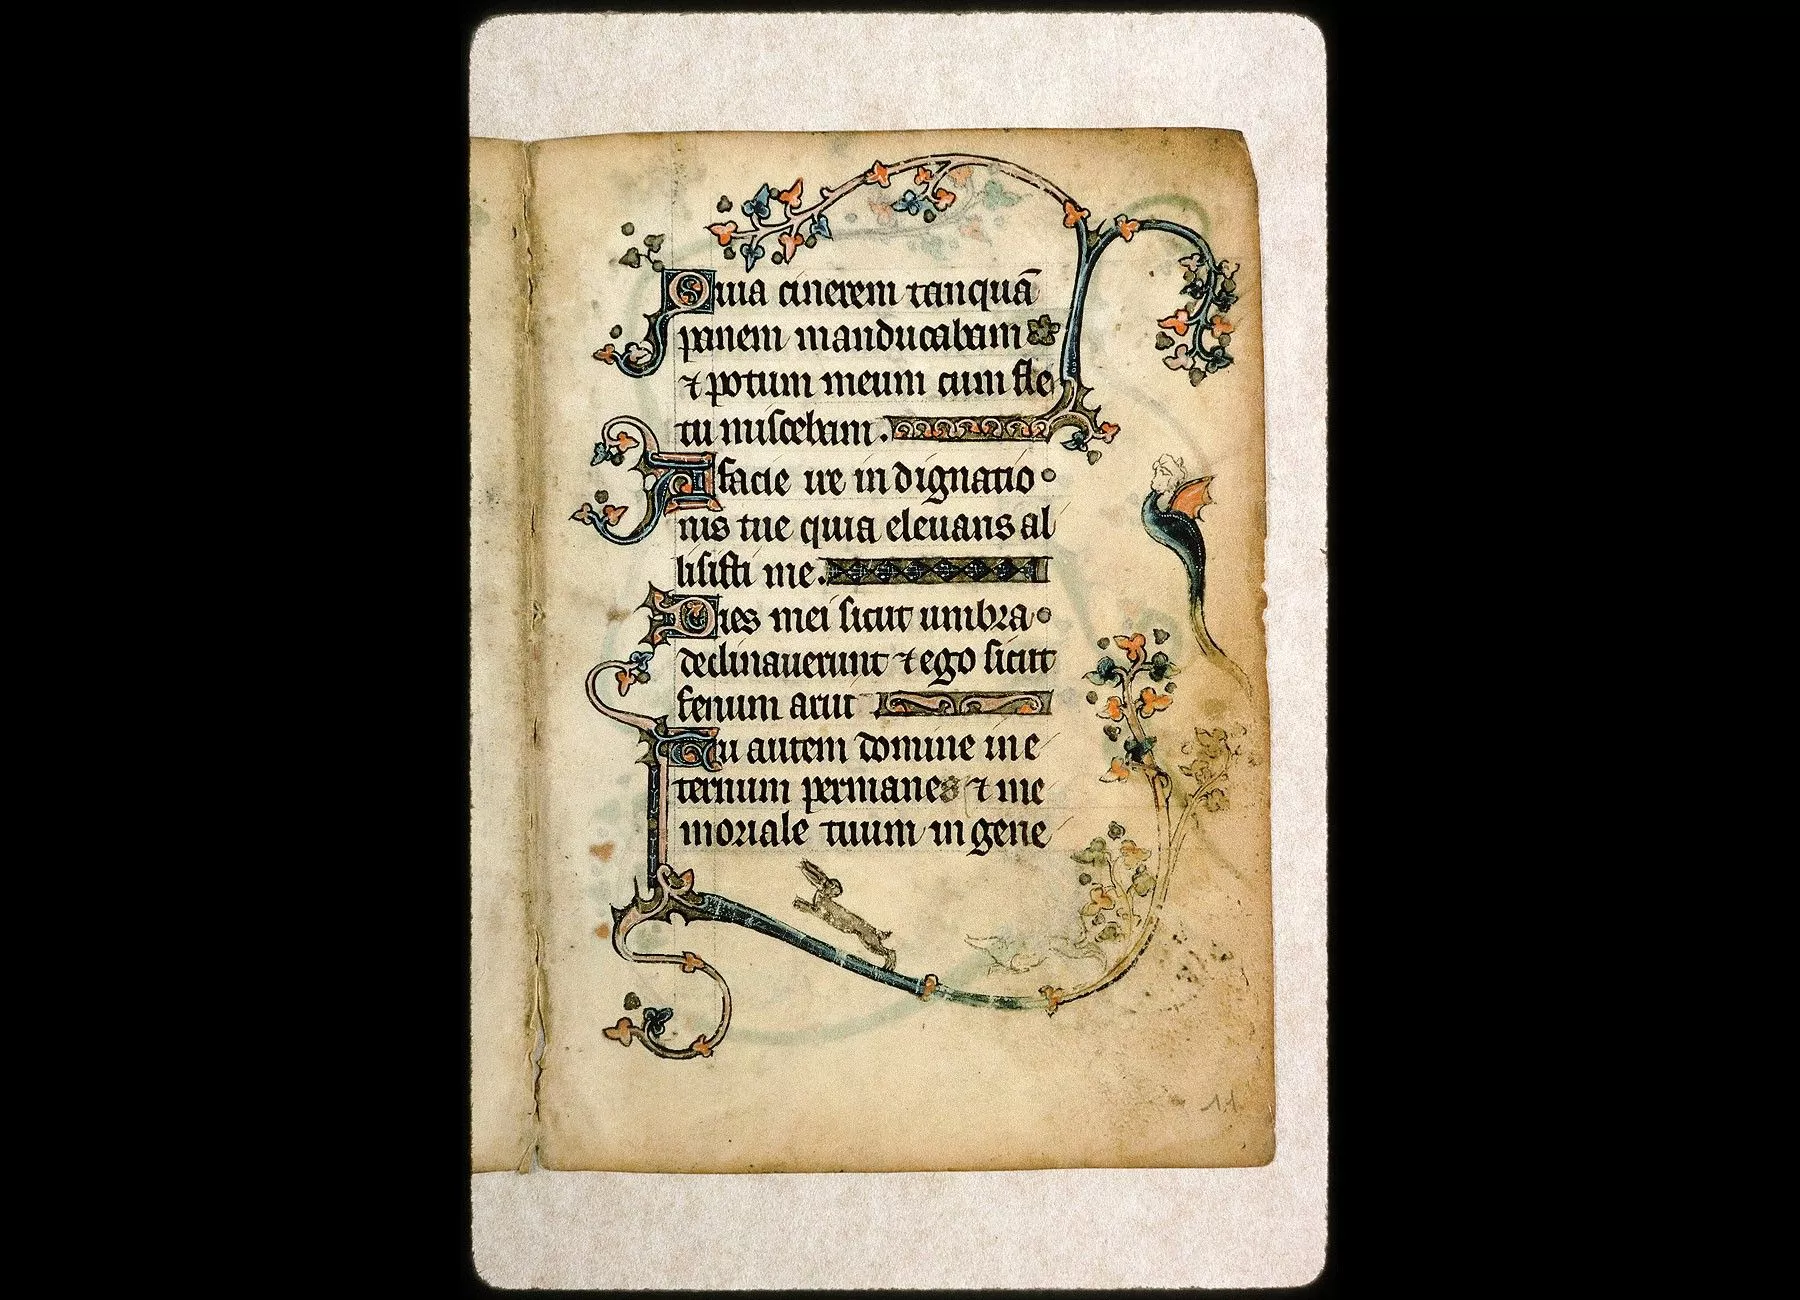 Quia cinerem tanquã
panem manducabam
⁊ potum meum cum fle
tu miscebam.
A facie ire indignatio
nis tue quia eleuans al
lisisti me.
Dies mei sicut umbra
declinauerunt ⁊ ego sicut
fenum arui
Tu autem domine in e
ternum permanes ⁊ me
moriale tuum in gene